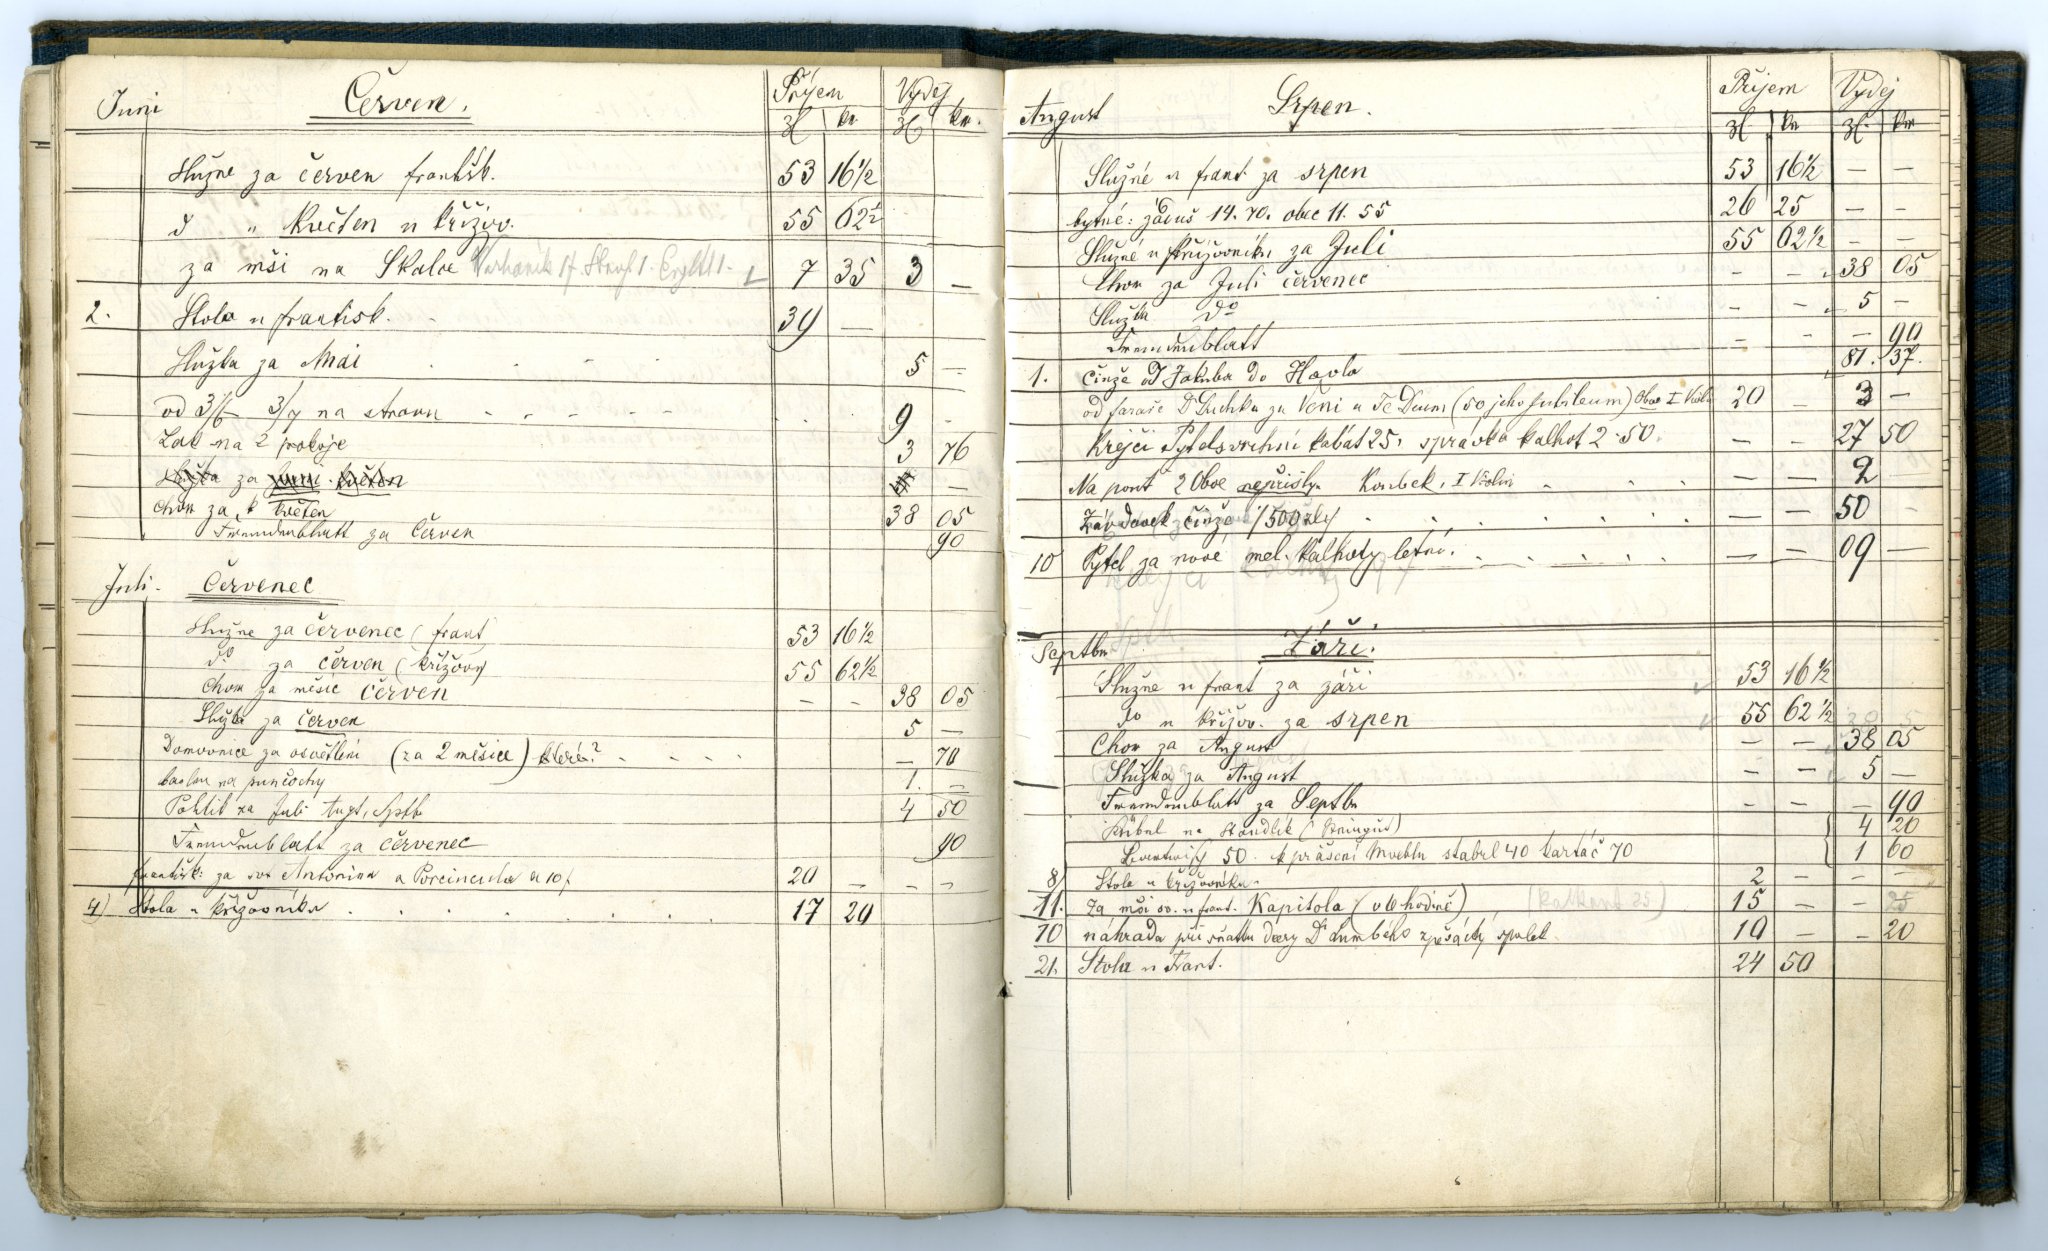 Juni Červen. Příjem Vydej
zl kr zl kr.
Služne za červen františk. 53 16½
d " Květen u křižov. 55 62½
za mši na Skalce 7 35 3 —
2. Stola u frantisk. 39 —
Služka za Mai - - 5 —
od 3/6 3/7 na stravu - - - - - 9 -
Lak na 2 pokoje 3 76
Služka za Juni. květen —
Chov za k květen 38 05
Fremdenblatt za Červen 90
Juli. Červenec
Služne za červenec (frant 53 16½
do za červen (křižov) 55 62½
Chov za měsíc červen - - 38 05
Služka za červen 5 —
Domovnice za osvětlení (za 2 měsíce) které? . . . . . - 70
bavlnu na punčochy 1. —
Juli Augt, Sptb 4 50
Fremdenblatt za červenec 90
františk: za sv. Antonína a Porcincula a 10f 20 — - -
4) Stola u křižovníku . . . . . . . 17 20
August Srpen. Příjem Vydej
zl. kr zl. kr
Služné u frant. za srpen 53 16½ — —
bytné: záduš 14. 70. obec 11. 55 26 25 — —
Služné u křižovníku za Juli 55 62½ — —
Chov za Juli červenec - - 38 05
Služka do — - 5 —
Fremdenblatt — - — 90
1. Činže od Jakuba do Havla 81. 37.
od faraře D. Suchka za Veni a Te Deum (50 jeho Jubileum) Oboe I Violin 20 — 3 —
Krejčí Pytel svrchní kabát 25, správka kalhot 2.50. — — 27 50
Na pont 2 Oboe nepřišly. Koubek, I Violin - . . . — — 2
Závdavek činže /500 zl/ . . . . . . . . — — 50 -
10 Pytel za nové mel. kalhoty letní. . . . . . — — 09 —
Septbr Září.
Služne u frant za září 53 16½
do u křižov. za srpen 55 62½
Chov za August — — 38 05
Služka za August — — 5 —
Fremdenblatt za Septbr — - — 90
4 20
50. k prášení Moeblu 40 kartáč 70 1 60
8) Stola u křižovníku. 2 — — —
11. Za mši sv. u frant. Kapitola (v 6 hodině) (kalkant 25) 15 — — 25
10 náhrada při sňatku dcery Dr 10 — — 20
21. Stola u Frant. 24 50